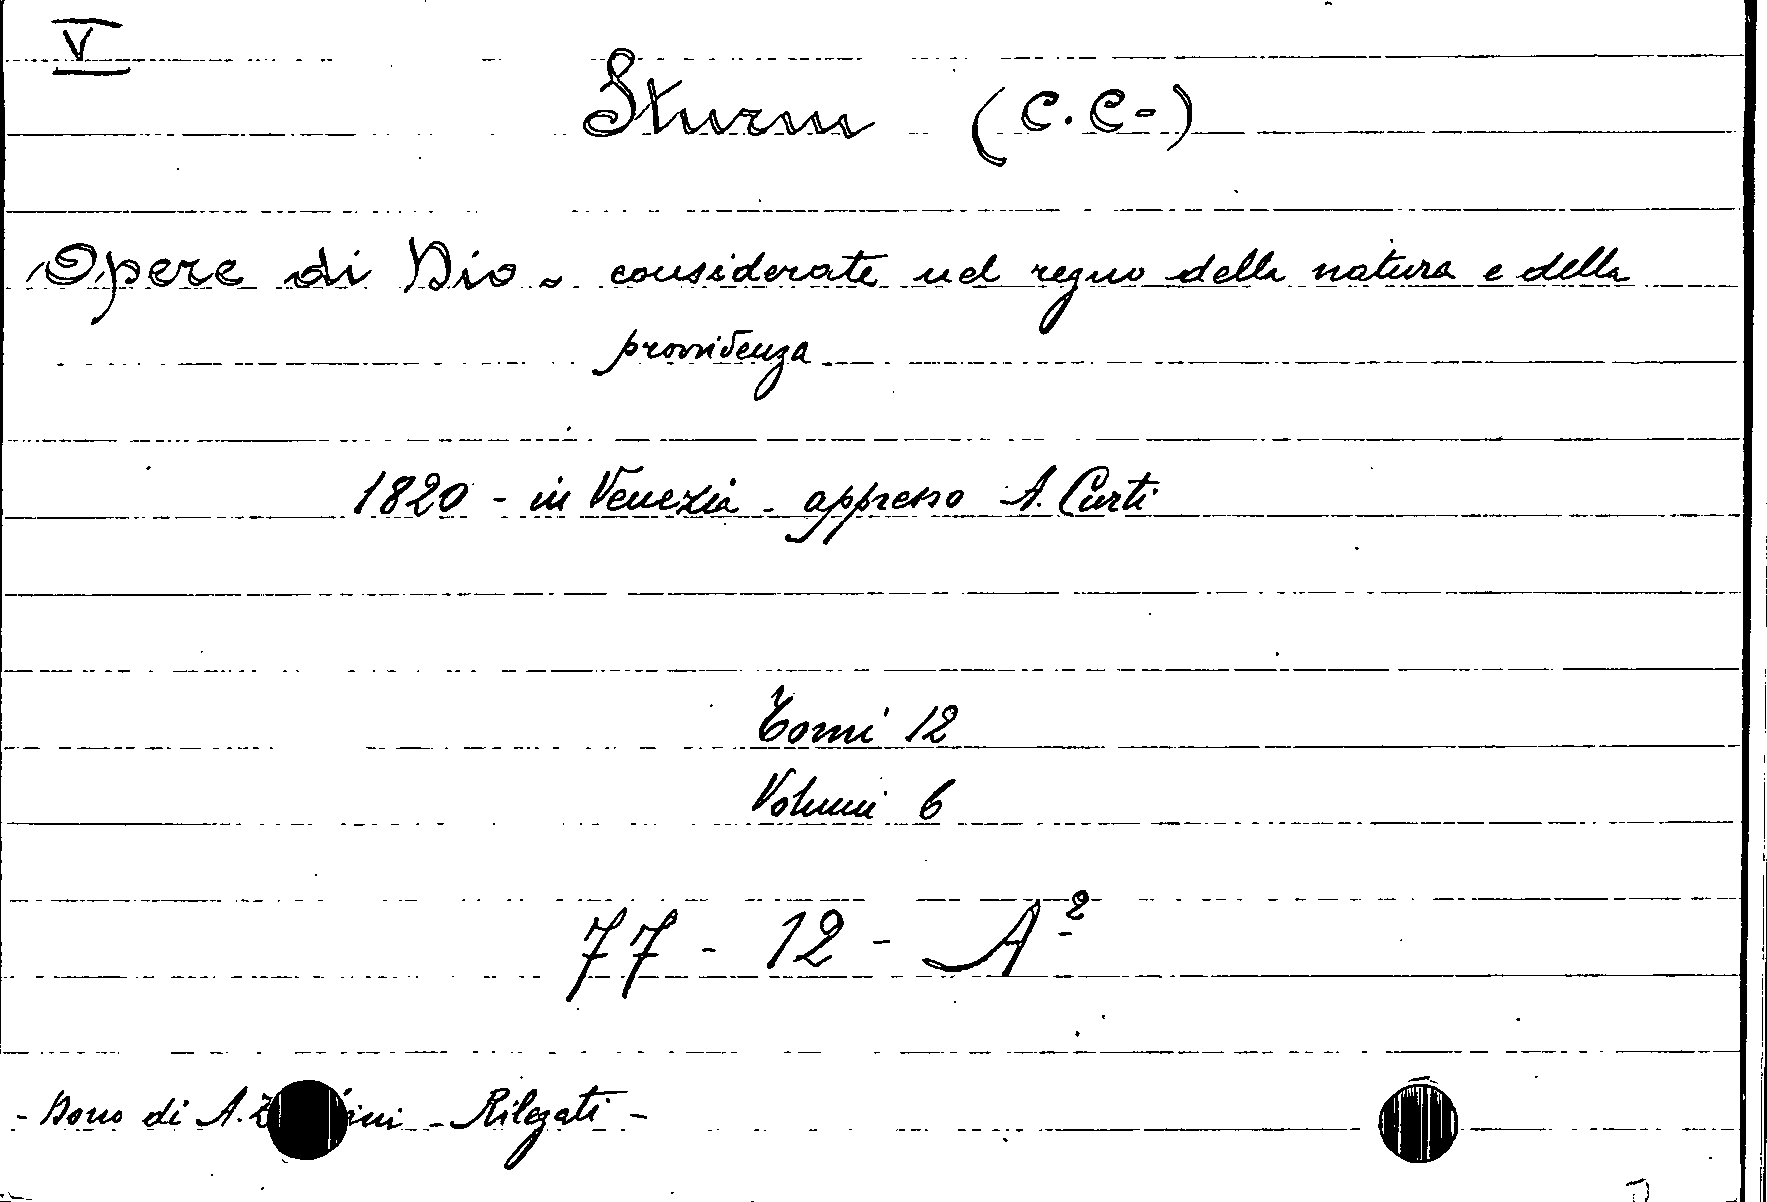 V
Sturm (C.C-)
Opere di Dio - considerate nel regno della natura e della
provvidenza
1820 - in Venezia - appresso A. Curti
Tomi 12
Volumi 6
77 - 12 - A²
- Dono di A. - Rilegati -